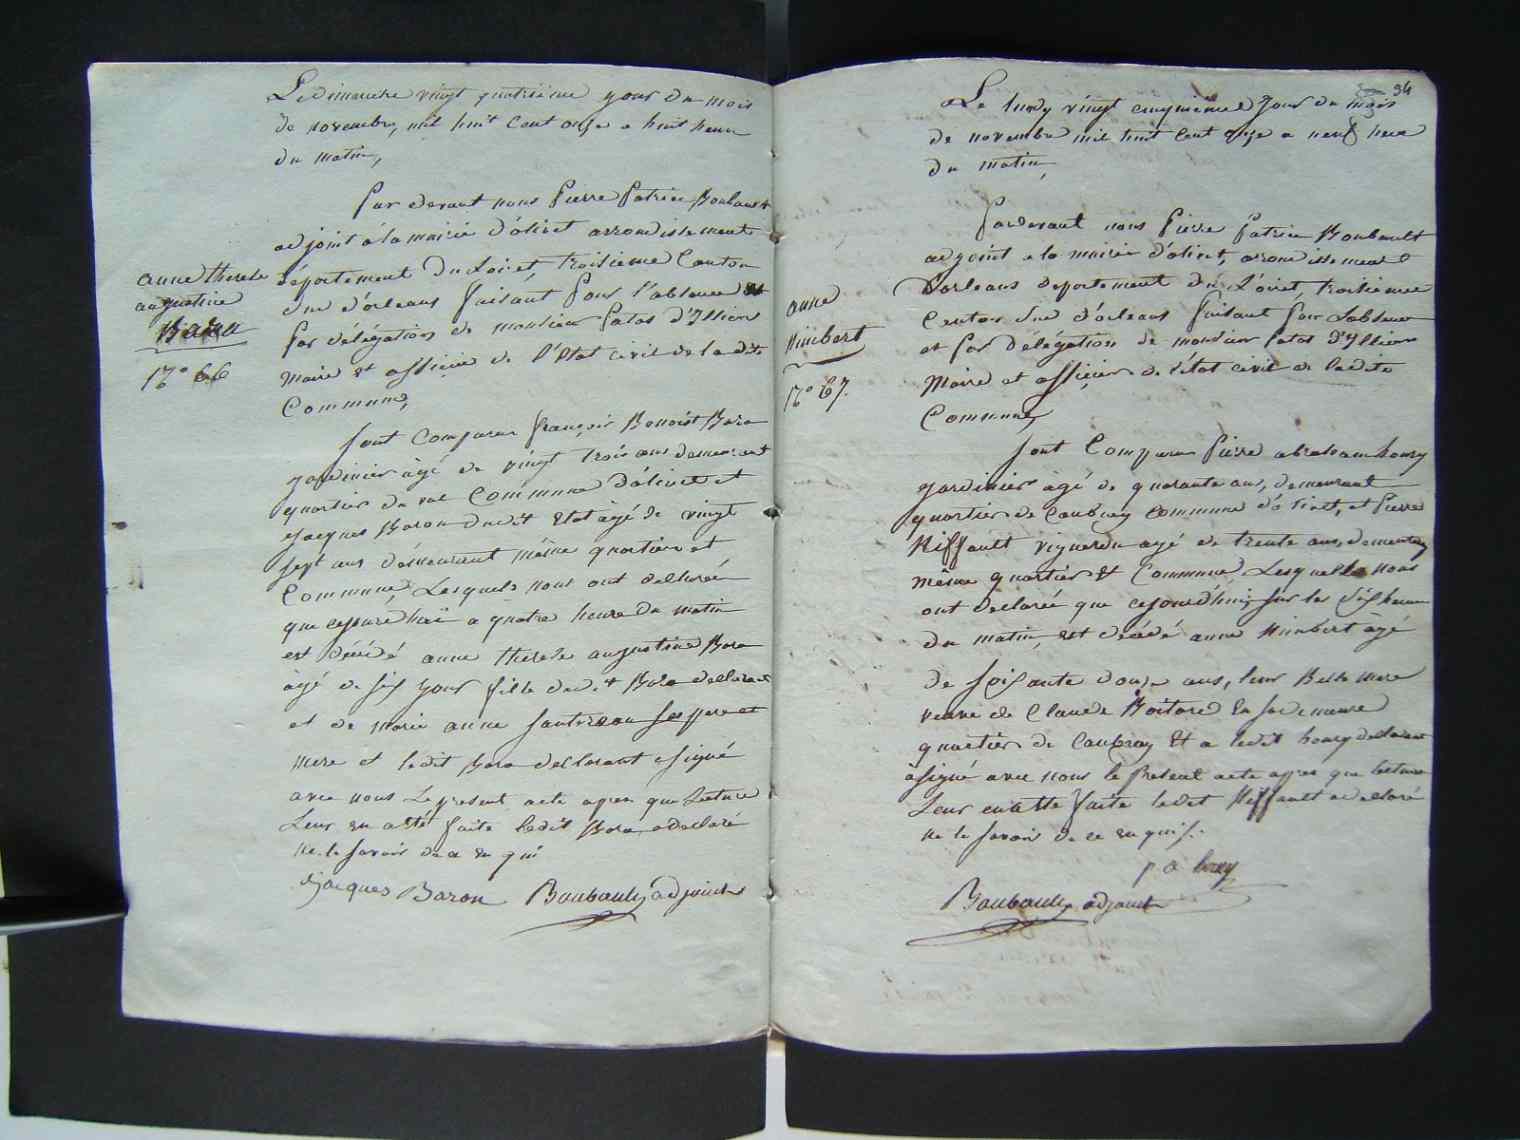 Le dimanche vingt quatrieme jour du mois
de novembre, mil huit cent onze a huit heure
du matin,
Par devant nous Pierre Patrice Boubault
adjoint à la mairie d'olivet arrondissement
département du Loiret, troisieme Canton
sud d'orleans faisant pour l'absence et
par délégation de monsieur Patas d'Illiers
Maire et officier de l'état civil de la dite
Commune,
anne therese
augustine
Baron
N° 66
sont comparu françois Benoist Baron
jardinier âgé de vingt trois ans demeurant
quartier du val Commune d'olivet et
jacques Baron du dit Etat agé de vingt
sept ans demeurant même quartier et
Commune, Lesquels nous ont declaré
que cejourdhui a quatre heure du matin
est décédé anne therese augustine Baron
âgé de six jour fille du dit Baron declarant
et de marie anne ses pere et
mere et ledit Baron declarant signé
avec nous Le present acte apres que Lecture
Leur en a été faite ledit Baron a declaré
ne le savoir de ce requi
jacques Baron Boubault adjoint
94
Le lundy vingt cinquieme jour du mois
de novembre mil huit cent onze a neuf heure
du matin,
Pardevant nous Pierre Patrice Boubault
adjoint a la mairie d'olivet, arrondissement
D'orleans departement du Loiret troisieme
Canton sud d'orleans faisant pour L'absence
et par délégation de monsieur Patas D'Illiers
Maire et officier de l'état civil de ladite
Commune,
anne
himbert
N° 67.
sont Comparu Pierre abraham houry
jardinier âgé de quarante ans, demeurant
quartier de Caubray Commune d'olivet, et Pierre
Riffault vigneron agé de trente ans, demeurant
même quartier et Commune, Lesquelle nous
ont declaré que cejourdhui sur les six heure
du matin, est décédé anne himbert âgé
de soixante douze ans, leur Belle mere
veuve de Claude en sa demeure
quartier de Caubray et a ledit houry declarant
à signé avec nous le present acte apres que lecture
Leur en a été faite ledit Riffault a declaré
ne le savoir de ce requis.
p a houry
Boubault adjoint